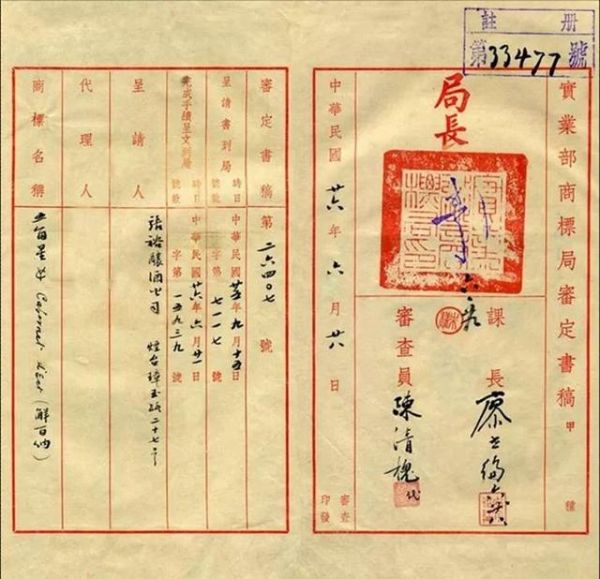 註冊
第33477號
實業部商標局審定書稿 甲 種
局長
課長
審查員 陳清槐 代
中華民國 廿六年 六月 日
審查印發
審定書稿第二六四〇七號
呈請書到局 時日 中華民國廿五年九月十五日
號數 字第七一一七號
完成手續呈文到局 時日 中華民國廿六年六月廿一日
號數 字第一五九三九號
呈請人 張裕釀酒公司 煙台 二十七
代理人
商標名稱 五角星及 Cabernet (解百納)